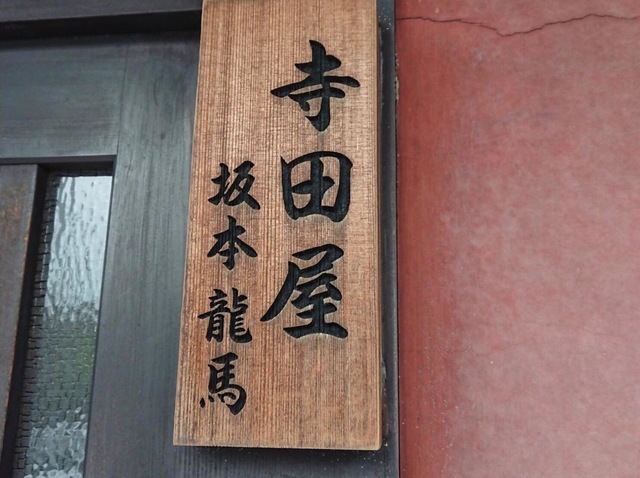 寺田屋
坂本龍馬